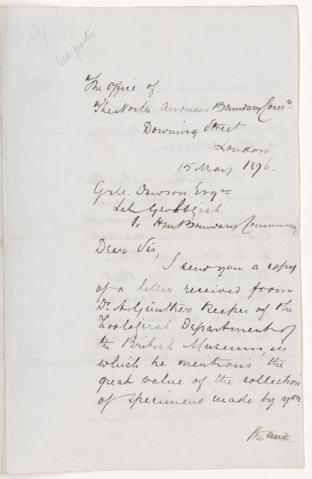 The Office of
The North American Boundary Comn
Downing Street
London
15 May 1876.
G.M. Dawson Esqre
Late Geologist
to H.M. Boundary Commission
Dear Sir,
I send you a copy
of a letter received from
Dr A Günther Keeper of the
Zoological Department of
the British Museum, in
which he mentions the
great value of the collection
of specimens made by you
the and